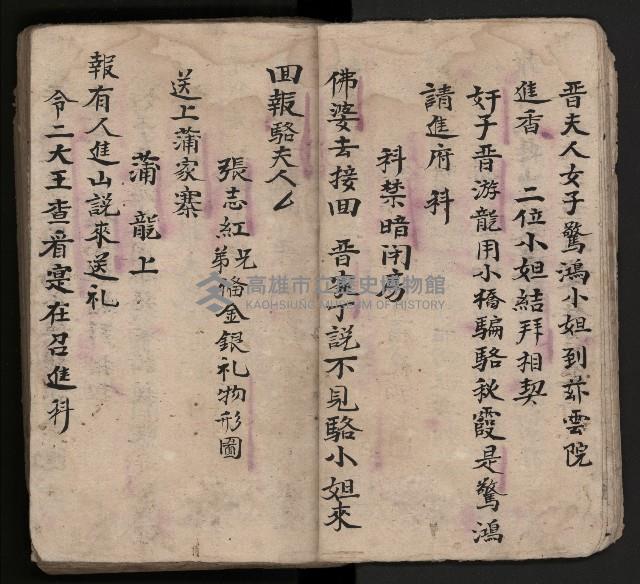 晋夫人女子驚鴻小姐到菻雲院
進香 二位小姐結拜相契
奸子晋游龍用小橋騙駱秋霞是驚鴻
請進府 科
科禁暗闭房
佛婆去接回 晋夫子説不見駱小姐來
回報駱夫人
張志紅兄弟 金銀礼物形圖
送上蒲家寨
蒲龍上
報有人進山説來送礼
令二大王查看寔在召進科
高雄市立歷史博物館
KAOHSIUNG MUSEUM OF HISTORY